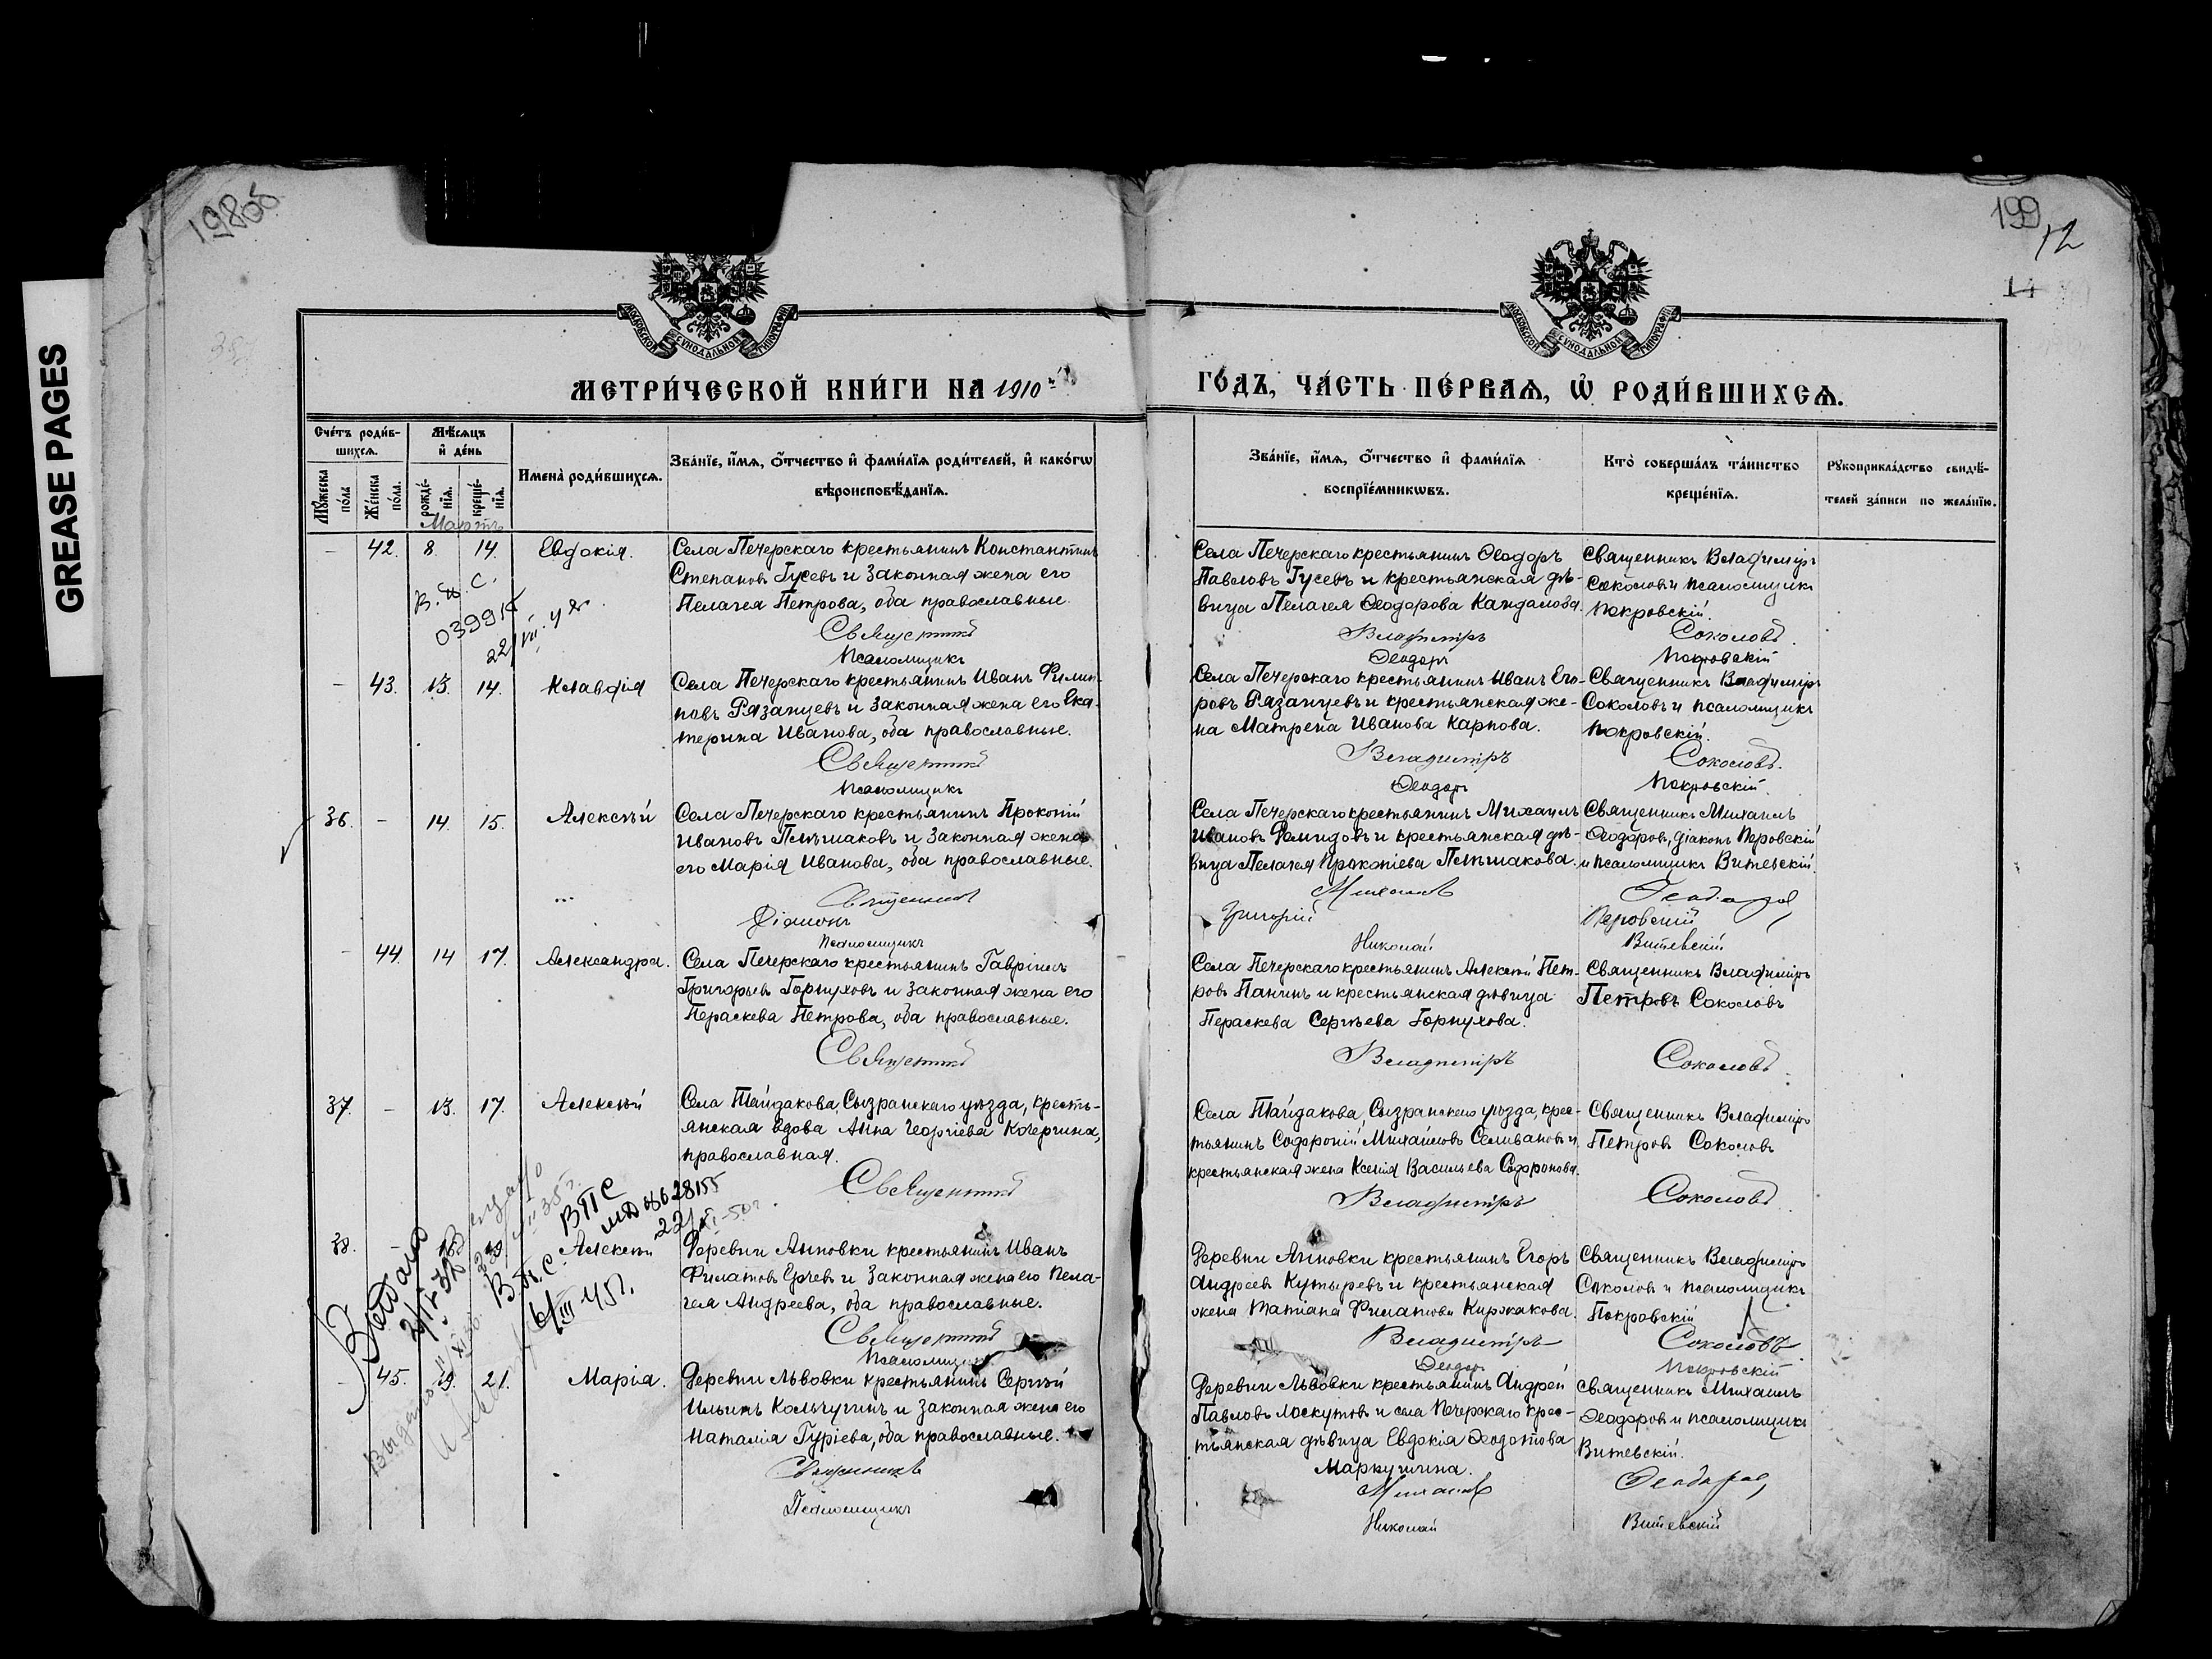 GREASE PAGES
198об
199
12
МОСКОВСКОЙ СѴНОДАЛЬНОЙ ТИПОГРАФІИ
МОСКОВСКОЙ СѴНОДАЛЬНОЙ ТИПОГРАФІИ
МЕТРИ́ЧЕСКОЙ КНИ́ГИ НА 1910й
ГО́ДЪ, ЧА́СТЬ ПЕ́РВАѦ, Ѡ РОДИ́ВШИХСѦ.
Сче́тъ роди́в-
шихсѧ.
Мꙋ́жеска по́ла
Же́нска по́ла.
Мѣ́сѧцъ
и҆ де́нь
рожде́-
нїѧ.
креще́-
нїѧ.
Имена̀ роди́вшихсѧ.
Зва́нїе, и҆́мѧ, ѻ҆́тчество и҆ фами́лїѧ роди́телей, и҆ како́гѡ
вѣроисповѣ́данїѧ.
Зва́нїе, и҆́мѧ, ѻ҆́тчество и҆ фами́лїѧ
воспрїе́мникѡвъ.
Кто̀ соверша́лъ та́инство
креще́нїѧ.
Рꙋкоприкла́дство свидѣ́-
телей за́писи по жела́нїю.
Мартъ
– 42. 8. 14. Евдокія.
Села Печерскаго крестьянинъ Константинъ
Степановъ Гусевъ и законная жена его
Пелагея Петрова, оба православные.
Священникъ
Псаломщикъ
Села Печерскаго крестьянинъ Ѳеодоръ
Павловъ Гусевъ и крестьянская дѣ-
вица Пелагея Ѳеодорова Кандалова.
Владиміръ
Ѳеодоръ
Священникъ Владиміръ
Соколовъ и псаломщикъ
Покровскій.
Соколовъ.
Покровскій
039915
– 43. 13. 14. Клавдія
Села Печерскаго крестьянинъ Иванъ Филип-
повъ Рязанцевъ и законная жена его Ека-
терина Иванова, оба православные.
Священникъ
Псаломщикъ
Села Печерскаго крестьянинъ Иванъ Его-
ровъ Рязанцевъ и крестьянская же-
на Матрена Иванова Карпова.
Владиміръ
Ѳеодоръ
Священникъ Владиміръ
Соколовъ и псаломщикъ
Покровскій.
Соколовъ.
Покровскій.
36. – 14. 15. Алексѣй
Села Печерскаго крестьянинъ Прокопій
Ивановъ Плѣшаковъ и законная жена
его Марія Иванова, оба православные.
Священникъ
Діаконъ
Псаломщикъ
Села Печерскаго крестьянинъ Михаилъ
Ивановъ Демидовъ и крестьянская дѣ-
вица Пелагея Прокопіева Плѣшакова.
Михаилъ
Григорій
Николай
Священникъ Михаилъ
Ѳеодоровъ, діаконъ Перовскій
и псаломщикъ Витевскій.
Ѳеодоровъ
Перовскій
Витевскій
– 44. 14 17. Александра.
Села Печерскаго крестьянинъ Гавріилъ
Григорьевъ Горнуховъ и законная жена его
Параскева Петрова, оба православные.
Священникъ
Села Печерскаго крестьянинъ Алексѣй Пет-
ровъ Панинъ и крестьянская дѣвица
Параскева Сергѣева Горнухова.
Владиміръ
Священникъ Владиміръ
Петровъ Соколовъ
Соколовъ
37. – 13. 17. Алексѣй
Села Тайдакова, Сызранскаго уѣзда, кресть-
янская вдова Анна Георгіева Кочергина,
православная.
Священникъ
Села Тайдакова, Сызранскаго уѣзда, крес-
тьянинъ Софроній Михайловъ Селивановъ и
крестьянская жена Ксенія Васильева Софронова.
Владиміръ
Священникъ Владиміръ
Петровъ Соколовъ
Соколовъ
ВПС
38. Алексѣй
Деревни Анновки крестьянинъ Иванъ
Филатовъ Ерчевъ и законная жена его Пела-
гея Андреева, оба православные.
Священникъ
Псаломщикъ
Деревни Анновки крестьянинъ Егоръ
Андреевъ Кутыревъ и крестьянская
жена Татіана Филатова Киржакова.
Владиміръ
Ѳеодоръ
Священникъ Владиміръ
Соколовъ и псаломщикъ
Покровскій
Соколовъ
Покровскій
– 45. 19. 21. Марія.
Деревни Львовки крестьянинъ Сергѣй
Ильинъ Кольчугинъ и законная жена его
Наталія Гуріева, оба православные.
Священникъ
Псаломщикъ
Деревни Львовки крестьянинъ Андрей
Павловъ Лоскутовъ и села Печерскаго крес-
тьянская дѣвица Евдокія Ѳеодотова
Маркушина.
Михаилъ
Николай
Священникъ Михаилъ
Ѳеодоровъ и псаломщикъ
Витевскій.
Ѳеодоровъ
Витевскій